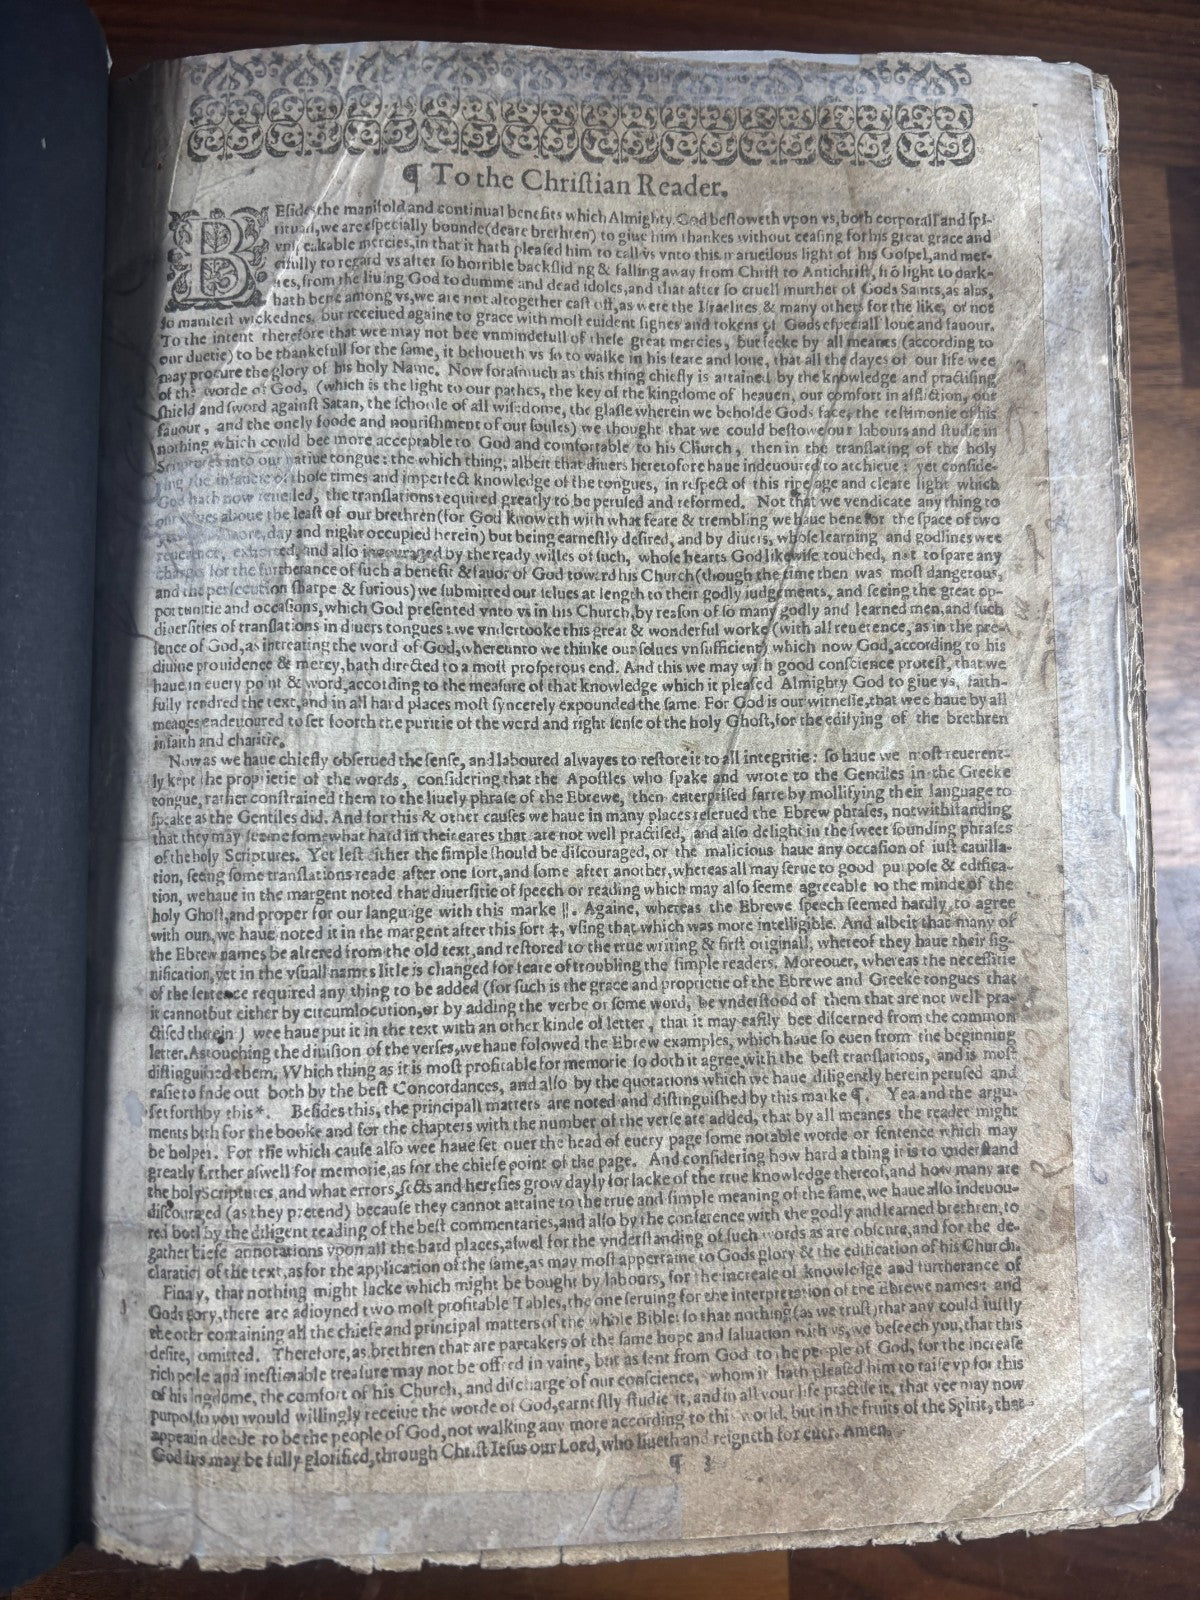 ¶ To the Chriſtian Reader.
BEſides the manifold and continual benefits which Almighty God beſtoweth vpon vs, both corporall and ſpi-
rituall, we are eſpecially bounde (deare brethren) to giue him thankes without ceaſing for his great grace and
vnſpeakable mercies, in that it hath pleaſed him to call vs vnto this maruelous light of his Goſpel, and mer-
cifully to regard vs after ſo horrible backſliding & falling away from Chriſt to Antichriſt, frō light to dark-
nes, from the liuing God to dumme and dead idoles, and that after ſo cruell murther of Gods Saints, as alas,
hath bene among vs, we are not altogether caſt off, as were the Iſraelites & many others for the like, or not
ſo manifeſt wickednes, but receiued againe to grace with moſt euident ſignes and tokens of Gods eſpeciall loue and fauour.
To the intent therefore that wee may not bee vnmindefull of theſe great mercies, but ſeeke by all meanes (according to
our duetie) to be thankefull for the ſame, it behoueth vs ſo to walke in his feare and loue, that all the dayes of our life wee
may procure the glory of his holy Name. Now foraſmuch as this thing chiefly is attained by the knowledge and practiſing
of the worde of God, (which is the light to our pathes, the key of the kingdome of heauen, our comfort in affliction, our
ſhield and ſword againſt Satan, the ſchoole of all wiſedome, the glaſſe wherein we beholde Gods face, the teſtimonie of his
fauour, and the onely foode and nouriſhment of our ſoules) we thought that we could beſtowe our labours and ſtudie in
nothing which could bee more acceptable to God and comfortable to his Church, then in the tranſlating of the holy
Scriptures into our natiue tongue: the which thing, albeit that diuers heretofore haue indeuoured to atchieue: yet conſide-
ring the infancie of thoſe times and imperfect knowledge of the tongues, in reſpect of this ripe age and cleare light which
God hath now reueiled, the tranſlations required greatly to be peruſed and reformed. Not that we vendicate any thing to
our ſelues aboue the leaſt of our brethren (for God knoweth with what feare & trembling we haue bene for the ſpace of two
more, day and night occupied herein) but being earneſtly deſired, and by diuers, whoſe learning and godlines wee
reuerence, exhorted, and alſo incouraged by the ready willes of ſuch, whoſe hearts God likewiſe touched, not to ſpare any
charges for the furtherance of ſuch a benefit & fauor of God toward his Church (though the time then was moſt dangerous,
and the perſecution ſharpe & furious) we ſubmitted our ſelues at length to their godly iudgements, and ſeeing the great op-
portunitie and occaſions, which God preſented vnto vs in his Church, by reaſon of ſo many godly and learned men, and ſuch
diuerſities of tranſlations in diuers tongues: we vndertooke this great & wonderful worke (with all reuerence, as in the pre-
ſence of God, as intreating the word of God, whereunto we thinke our ſelues vnſufficient) which now God, according to his
diuine prouidence & mercy, hath directed to a moſt proſperous end. And this we may with good conſcience proteſt, that we
haue in euery point & word, according to the meaſure of that knowledge which it pleaſed Almighty God to giue vs, faith-
fully rendred the text, and in all hard places moſt ſyncerely expounded the ſame. For God is our witneſſe, that wee haue by all
meanes endeuoured to ſet foorth the puritie of the word and right ſenſe of the holy Ghoſt, for the edifying of the brethren
in faith and charitie.
Now as we haue chiefly obſerued the ſenſe, and laboured alwayes to reſtore it to all integritie: ſo haue we moſt reuerent-
ly kept the proprietie of the words, conſidering that the Apoſtles who ſpake and wrote to the Gentiles in the Greeke
tongue, rather conſtrained them to the liuely phraſe of the Ebrewe, then enterpriſed farre by mollifying their language to
ſpeake as the Gentiles did. And for this & other cauſes we haue in many places reſerued the Ebrew phraſes, notwithſtanding
that they may ſeeme ſomewhat hard in their eares that are not well practiſed, and alſo delight in the ſweet ſounding phraſes
of the holy Scriptures. Yet leſt either the ſimple ſhould be diſcouraged, or the malicious haue any occaſion of iuſt cauilla-
tion, ſeeing ſome tranſlations reade after one ſort, and ſome after another, whereas all may ſerue to good purpoſe & edifica-
tion, we haue in the margent noted that diuerſitie of ſpeech or reading which may alſo ſeeme agreeable to the minde of the
holy Ghoſt, and proper for our language with this marke ||. Againe, whereas the Ebrewe ſpeech ſeemed hardly to agree
with ours, we haue noted it in the margent after this ſort ‡, vſing that which was more intelligible. And albeit that many of
the Ebrew names be altered from the old text, and reſtored to the true writing & firſt originall, whereof they haue their ſig-
nification, yet in the vſuall names litle is changed for feare of troubling the ſimple readers. Moreouer, whereas the neceſſitie
of the ſentence required any thing to be added (for ſuch is the grace and proprietie of the Ebrewe and Greeke tongues that
it cannot but either by circumlocution, or by adding the verbe or ſome word, be vnderſtood of them that are not well pra-
ctiſed therein) wee haue put it in the text with an other kinde of letter, that it may eaſily bee diſcerned from the common
letter. As touching the diuiſion of the verſes, we haue folowed the Ebrew examples, which haue ſo euen from the beginning
diſtinguiſhed them. Which thing as it is moſt profitable for memorie ſo doth it agree with the beſt tranſlations, and is moſt
eaſie to finde out both by the beſt Concordances, and alſo by the quotations which we haue diligently herein peruſed and
ſet forth by this *. Beſides this, the principall matters are noted and diſtinguiſhed by this marke ¶. Yea and the argu-
ments both for the booke and for the chapters with the number of the verſe are added, that by all meanes the reader might
be holpen. For the which cauſe alſo wee haue ſet ouer the head of euery page ſome notable worde or ſentence which may
greatly further aſwell for memorie, as for the chiefe point of the page. And conſidering how hard a thing it is to vnderſtand
the holy Scriptures, and what errors, ſects and hereſies grow dayly for lacke of the true knowledge thereof, and how many are
diſcouraged (as they pretend) becauſe they cannot attaine to the true and ſimple meaning of the ſame, we haue alſo indeuou-
red both by the diligent reading of the beſt commentaries, and alſo by the conference with the godly and learned brethren, to
gather briefe annotations vpon all the hard places, aſwel for the vnderſtanding of ſuch words as are obſcure, and for the de-
claration of the text, as for the application of the ſame, as may moſt appertaine to Gods glory & the edification of his Church.
Finally, that nothing might lacke which might be bought by labours, for the increaſe of knowledge and furtherance of
Gods glory, there are adioyned two moſt profitable Tables, the one ſeruing for the interpretation of the Ebrewe names: and
the other containing all the chiefe and principal matters of the whole Bible: ſo that nothing (as we truſt) that any could iuſtly
deſire, omitted. Therefore, as brethren that are partakers of the ſame hope and ſaluation with vs, we beſeech you, that this
rich perle and ineſtimable treaſure may not be offred in vaine, but as ſent from God to the people of God, for the increaſe
of his kingdome, the comfort of his Church, and diſcharge of our conſcience, whom it hath pleaſed him to raiſe vp for this
purpoſe, ſo you would willingly receiue the worde of God, earneſtly ſtudie it, and in all your life practiſe it, that yee may now
appeare in deede to be the people of God, not walking any more according to this world, but in the fruits of the Spirit, that
God in vs may be fully glorified, through Chriſt Ieſus our Lord, who liueth and reigneth for euer. Amen.
¶ 3